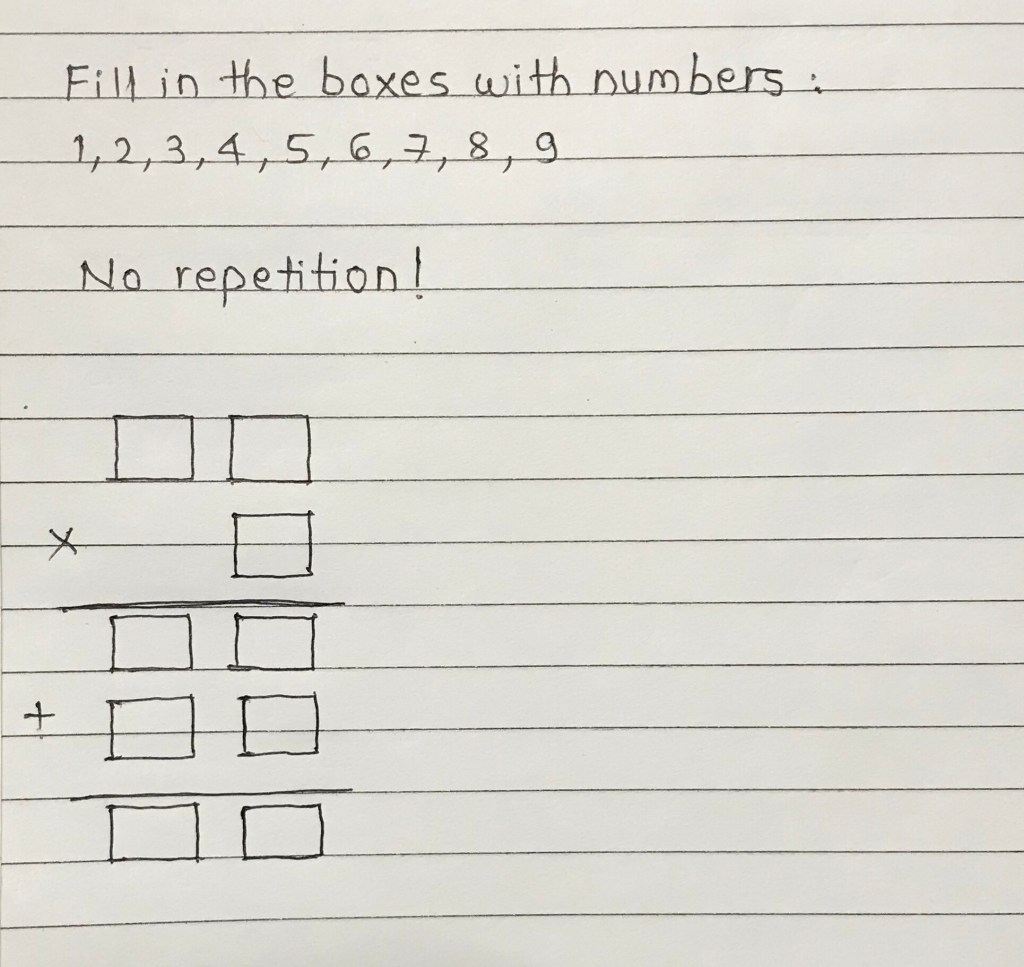 Fill in the boxes with numbers :
1, 2, 3, 4, 5, 6, 7, 8, 9
No repetition!
×
+